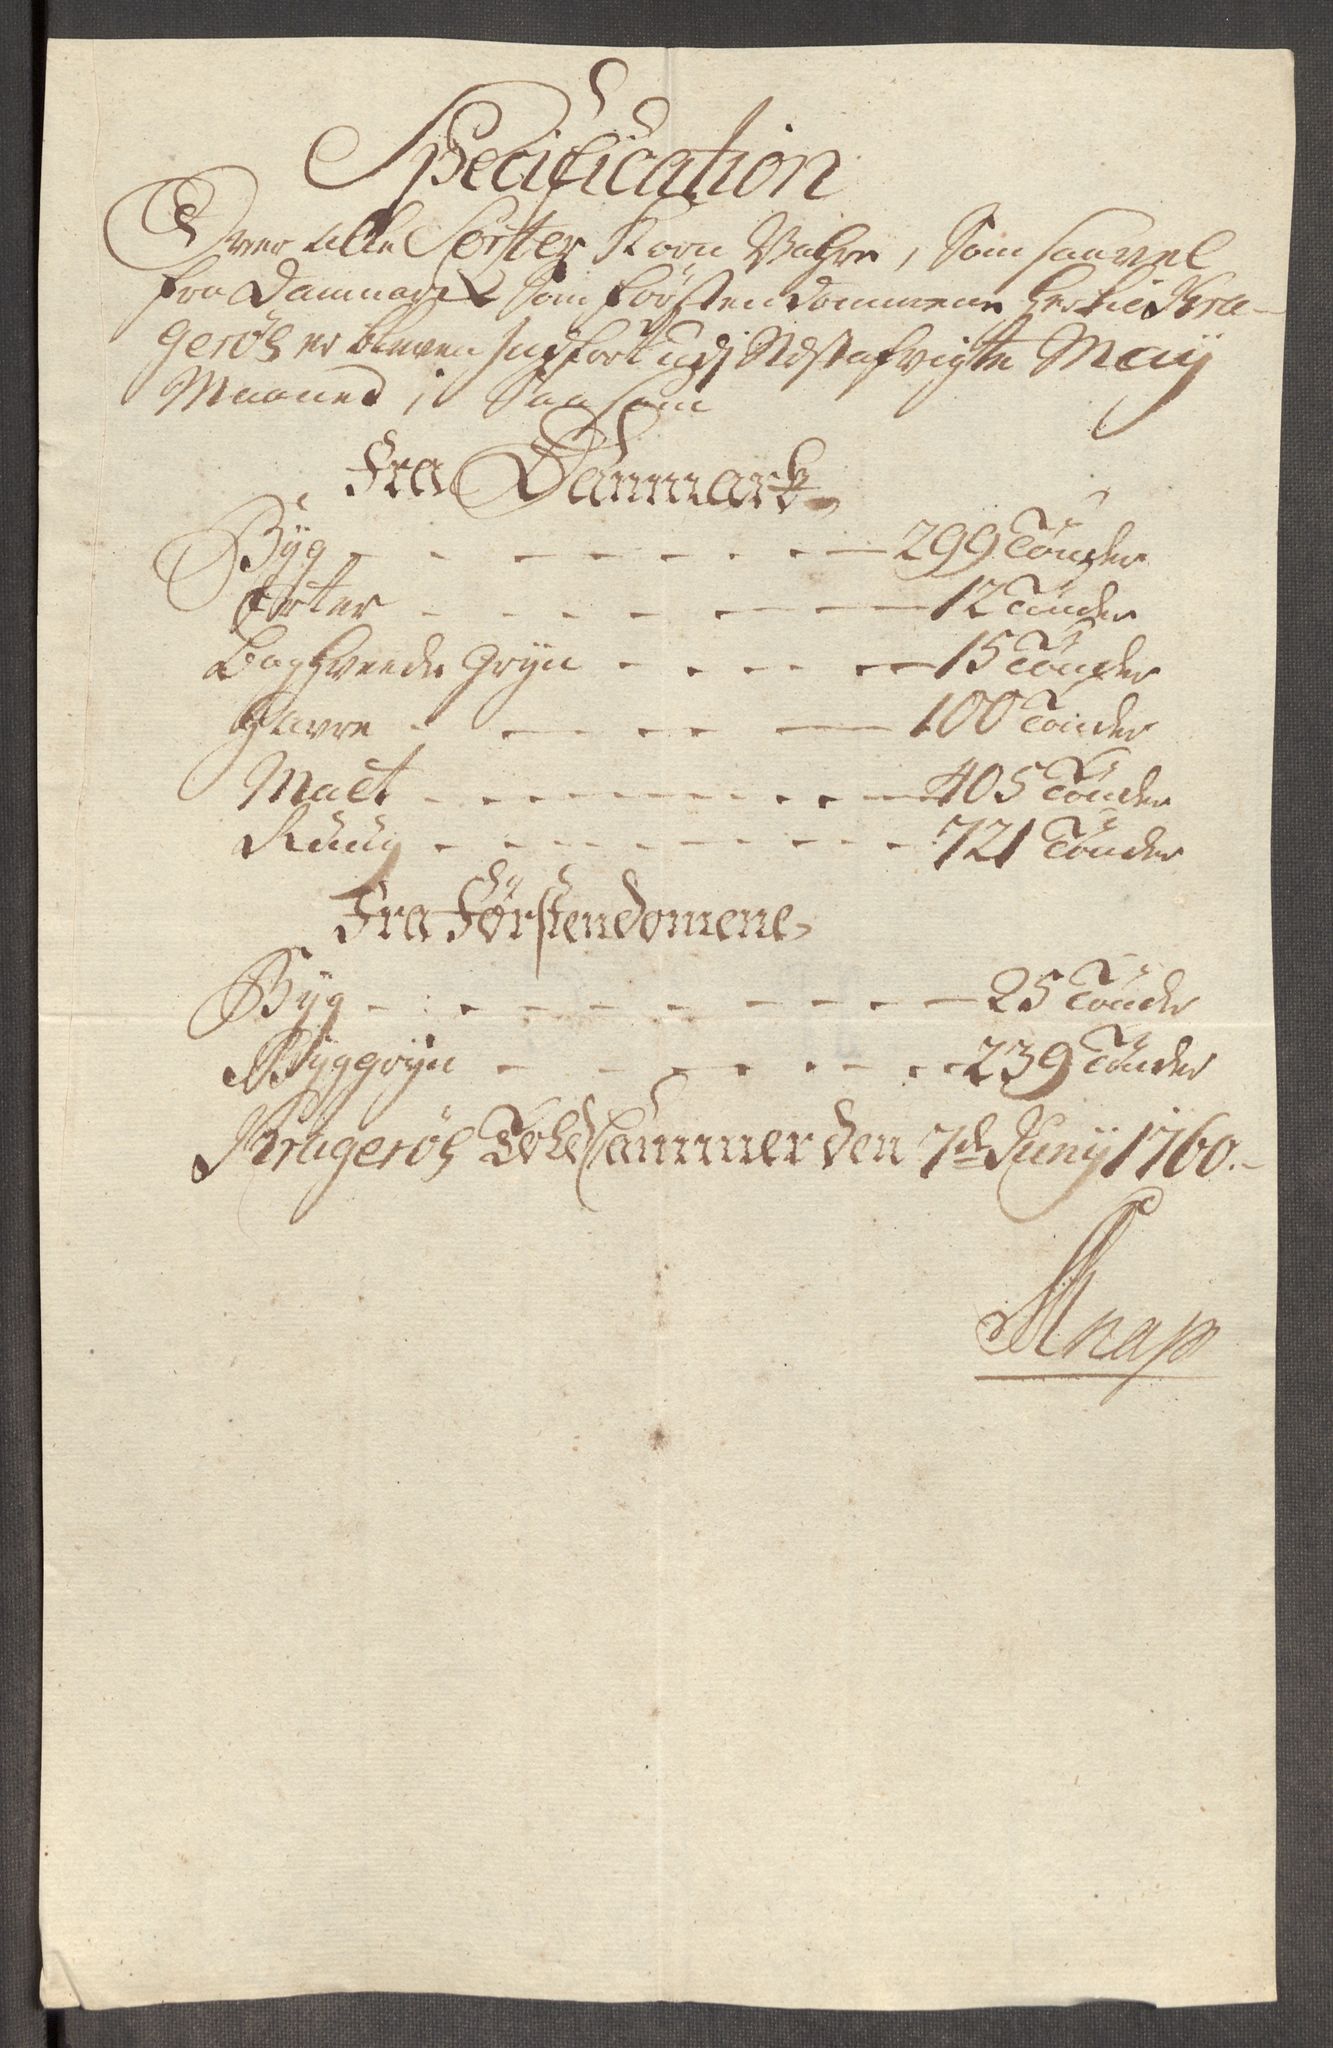 Specification
Over alle Sorter Korn Vahre, som saavel
fra Danmark som förstendommene her til Kra-
geröe er bleven Indfört udj Nestafvigte Maij
Maaned, Saasom
Fra Danmark
Byg - - - - - - - 299 Tönder
Erter - - - - - - 12 Tönder
Boghveede Gryn - - - - - 15 Tönder
Havre - - - - - 100 Tönder
Malt - - - - - - - - - 405 Tönder
Ruug - - - - - - - - - 721 Tönder
Fra Förstendomene
Byg - - - - - - - - - 25 Tönder
Byggryn - - - - - - - 239 Tönder
Krageröe Told Cammer den 7de Junij 1760.-
Knap